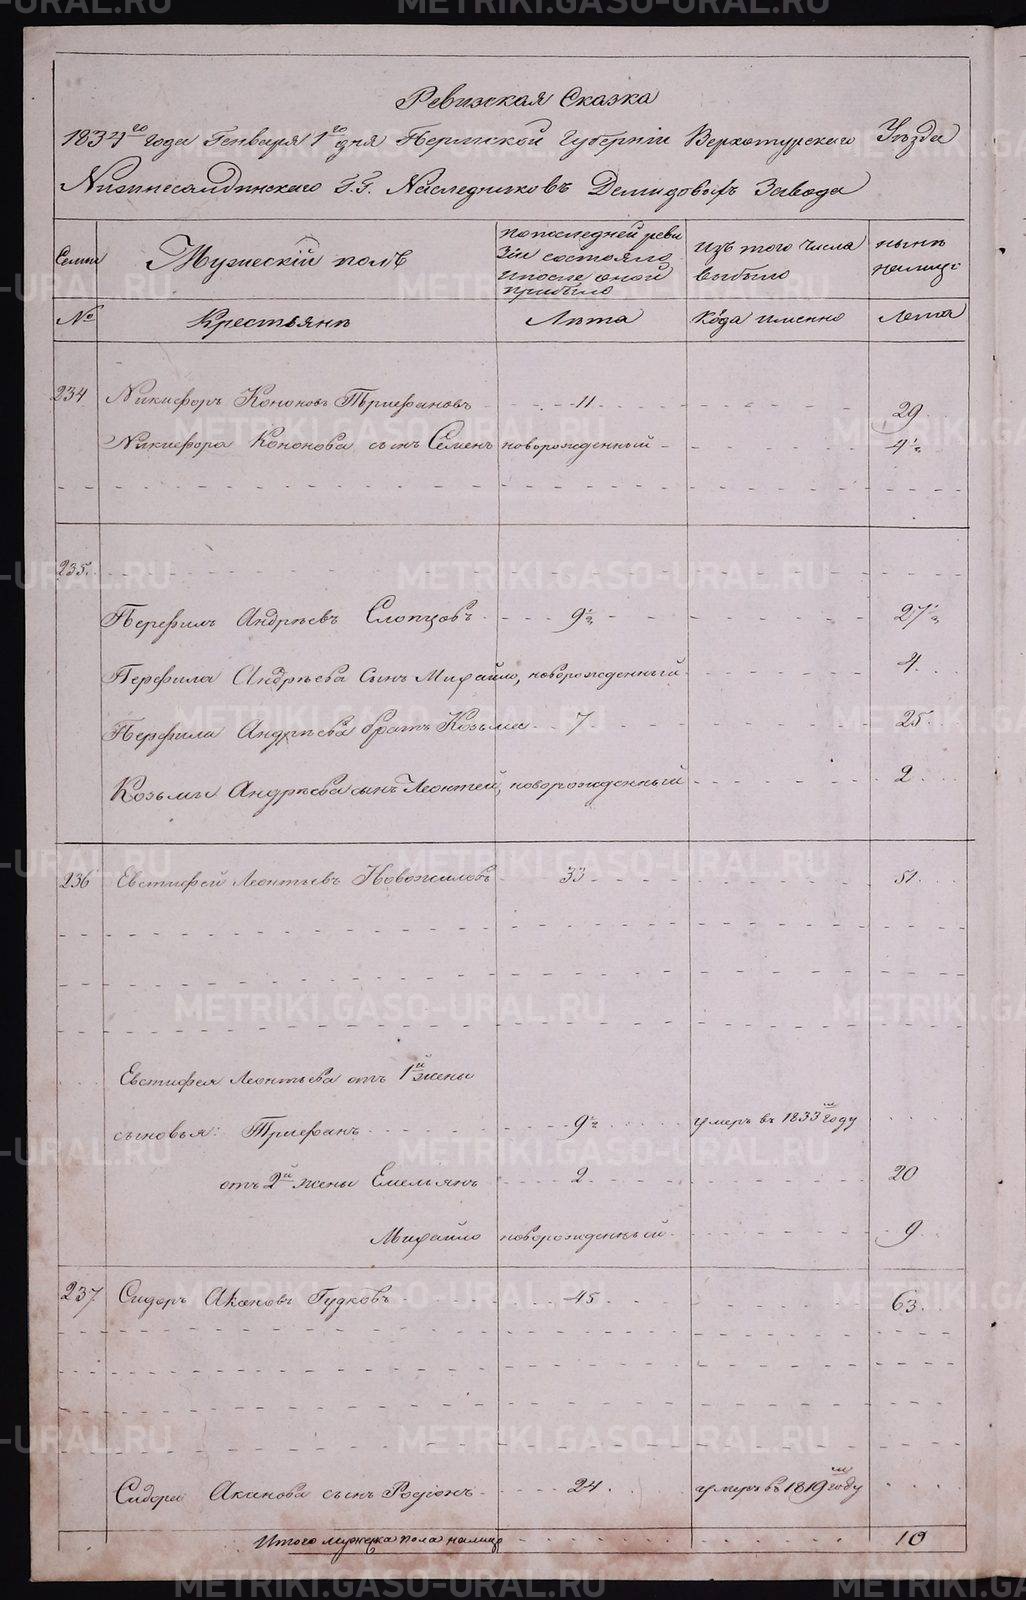 Ревизская Сказка
1834го года Генваря 1го дня Пермской Губерніи Верхотурскаго Уѣзда
Нижнесалдинскаго Г.Г. Наследниковъ Демидовыхъ Завода
Семьи
Мужескій полъ
по последней реви
зіи состояло
и после оной
прибыло
Изъ того числа
выбыло
нынѣ
на лицѣ
№
Крестьянѣ
Лѣта
Когда именно
Лета
234 Никифоръ Кононовъ Трифановъ 11 29
Никифора Кононова сынъ Семенъ новорожденный 4½
235.
Перфилъ Андрѣевъ Слопцовъ 9½ 27½
Перфила Андрѣева Сынъ Михайло, новорожденный 4
Перфила Андрѣева братъ Козьма 7 25.
Козьмы Андрѣева сынъ Леонтей, новорожденный 2
236 Евстифей Леонтьевъ Новожиловъ 33 51.
Евстифея Леонтьева отъ 1й жены
сыновья: Трифанъ 9½ умеръ въ 1833м году
отъ 2й жены Емельянъ 2 20
Михайло новорожденный 9
237 Сидоръ Акановъ Гудковъ 45 63.
Сидора Аканова сынъ Родіонъ 24 умеръ въ 1819м году
Итого мужеска пола на лицо 10
METRIKI.GASO-URAL.RU